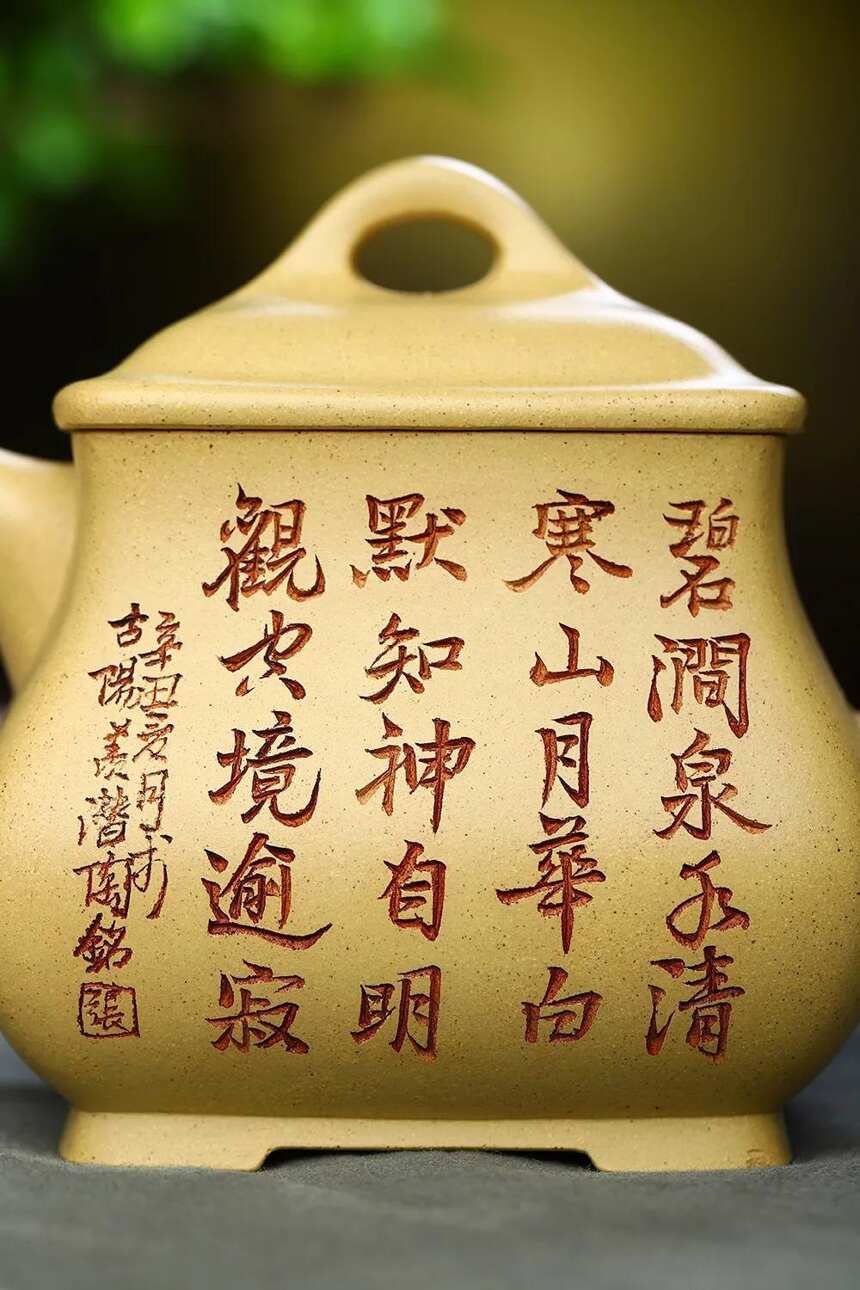 碧澗泉水清
寒山月華白
默知神自明
觀空境逾寂
辛丑月於
古陽羨潛陶銘
張